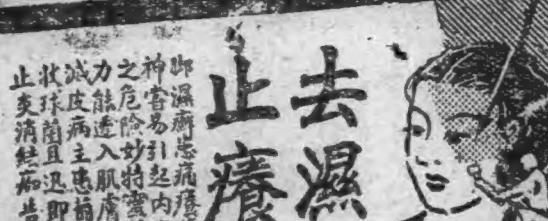 去濕
止癢
脚濕癬患痛癢
神嘗易引起内
之危險妙特靈
力能透入肌膚
滅皮病主患
收球菌且迅即
止炎消結痂